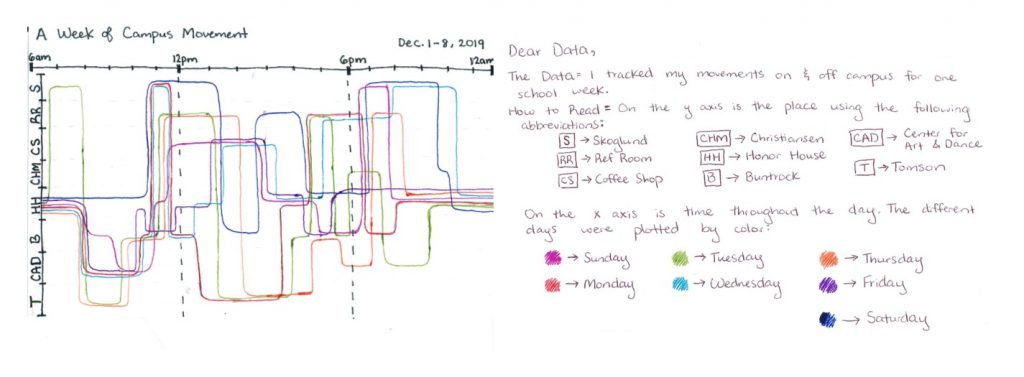 A Week of Campus Movement
Dec. 1-8, 2019
6am 12pm 6pm 12am
S
RR
CS
CHM
HH
B
CAD
T
Dear Data,
The Data = I tracked my movements on & off campus for one
school week.
How to Read = On the y axis is the place using the following
abbreviations:
S → Skoglund
CHM → Christiansen
CAD → Center for
Art & Dance
RR → Ref Room
HH → Honor House
T → Tomson
CS → Coffee Shop
B → Buntrock
On the x axis is time throughout the day. The different
days were plotted by color:
→ Sunday
→ Tuesday
→ Thursday
→ Monday
→ Wednesday
→ Friday
→ Saturday